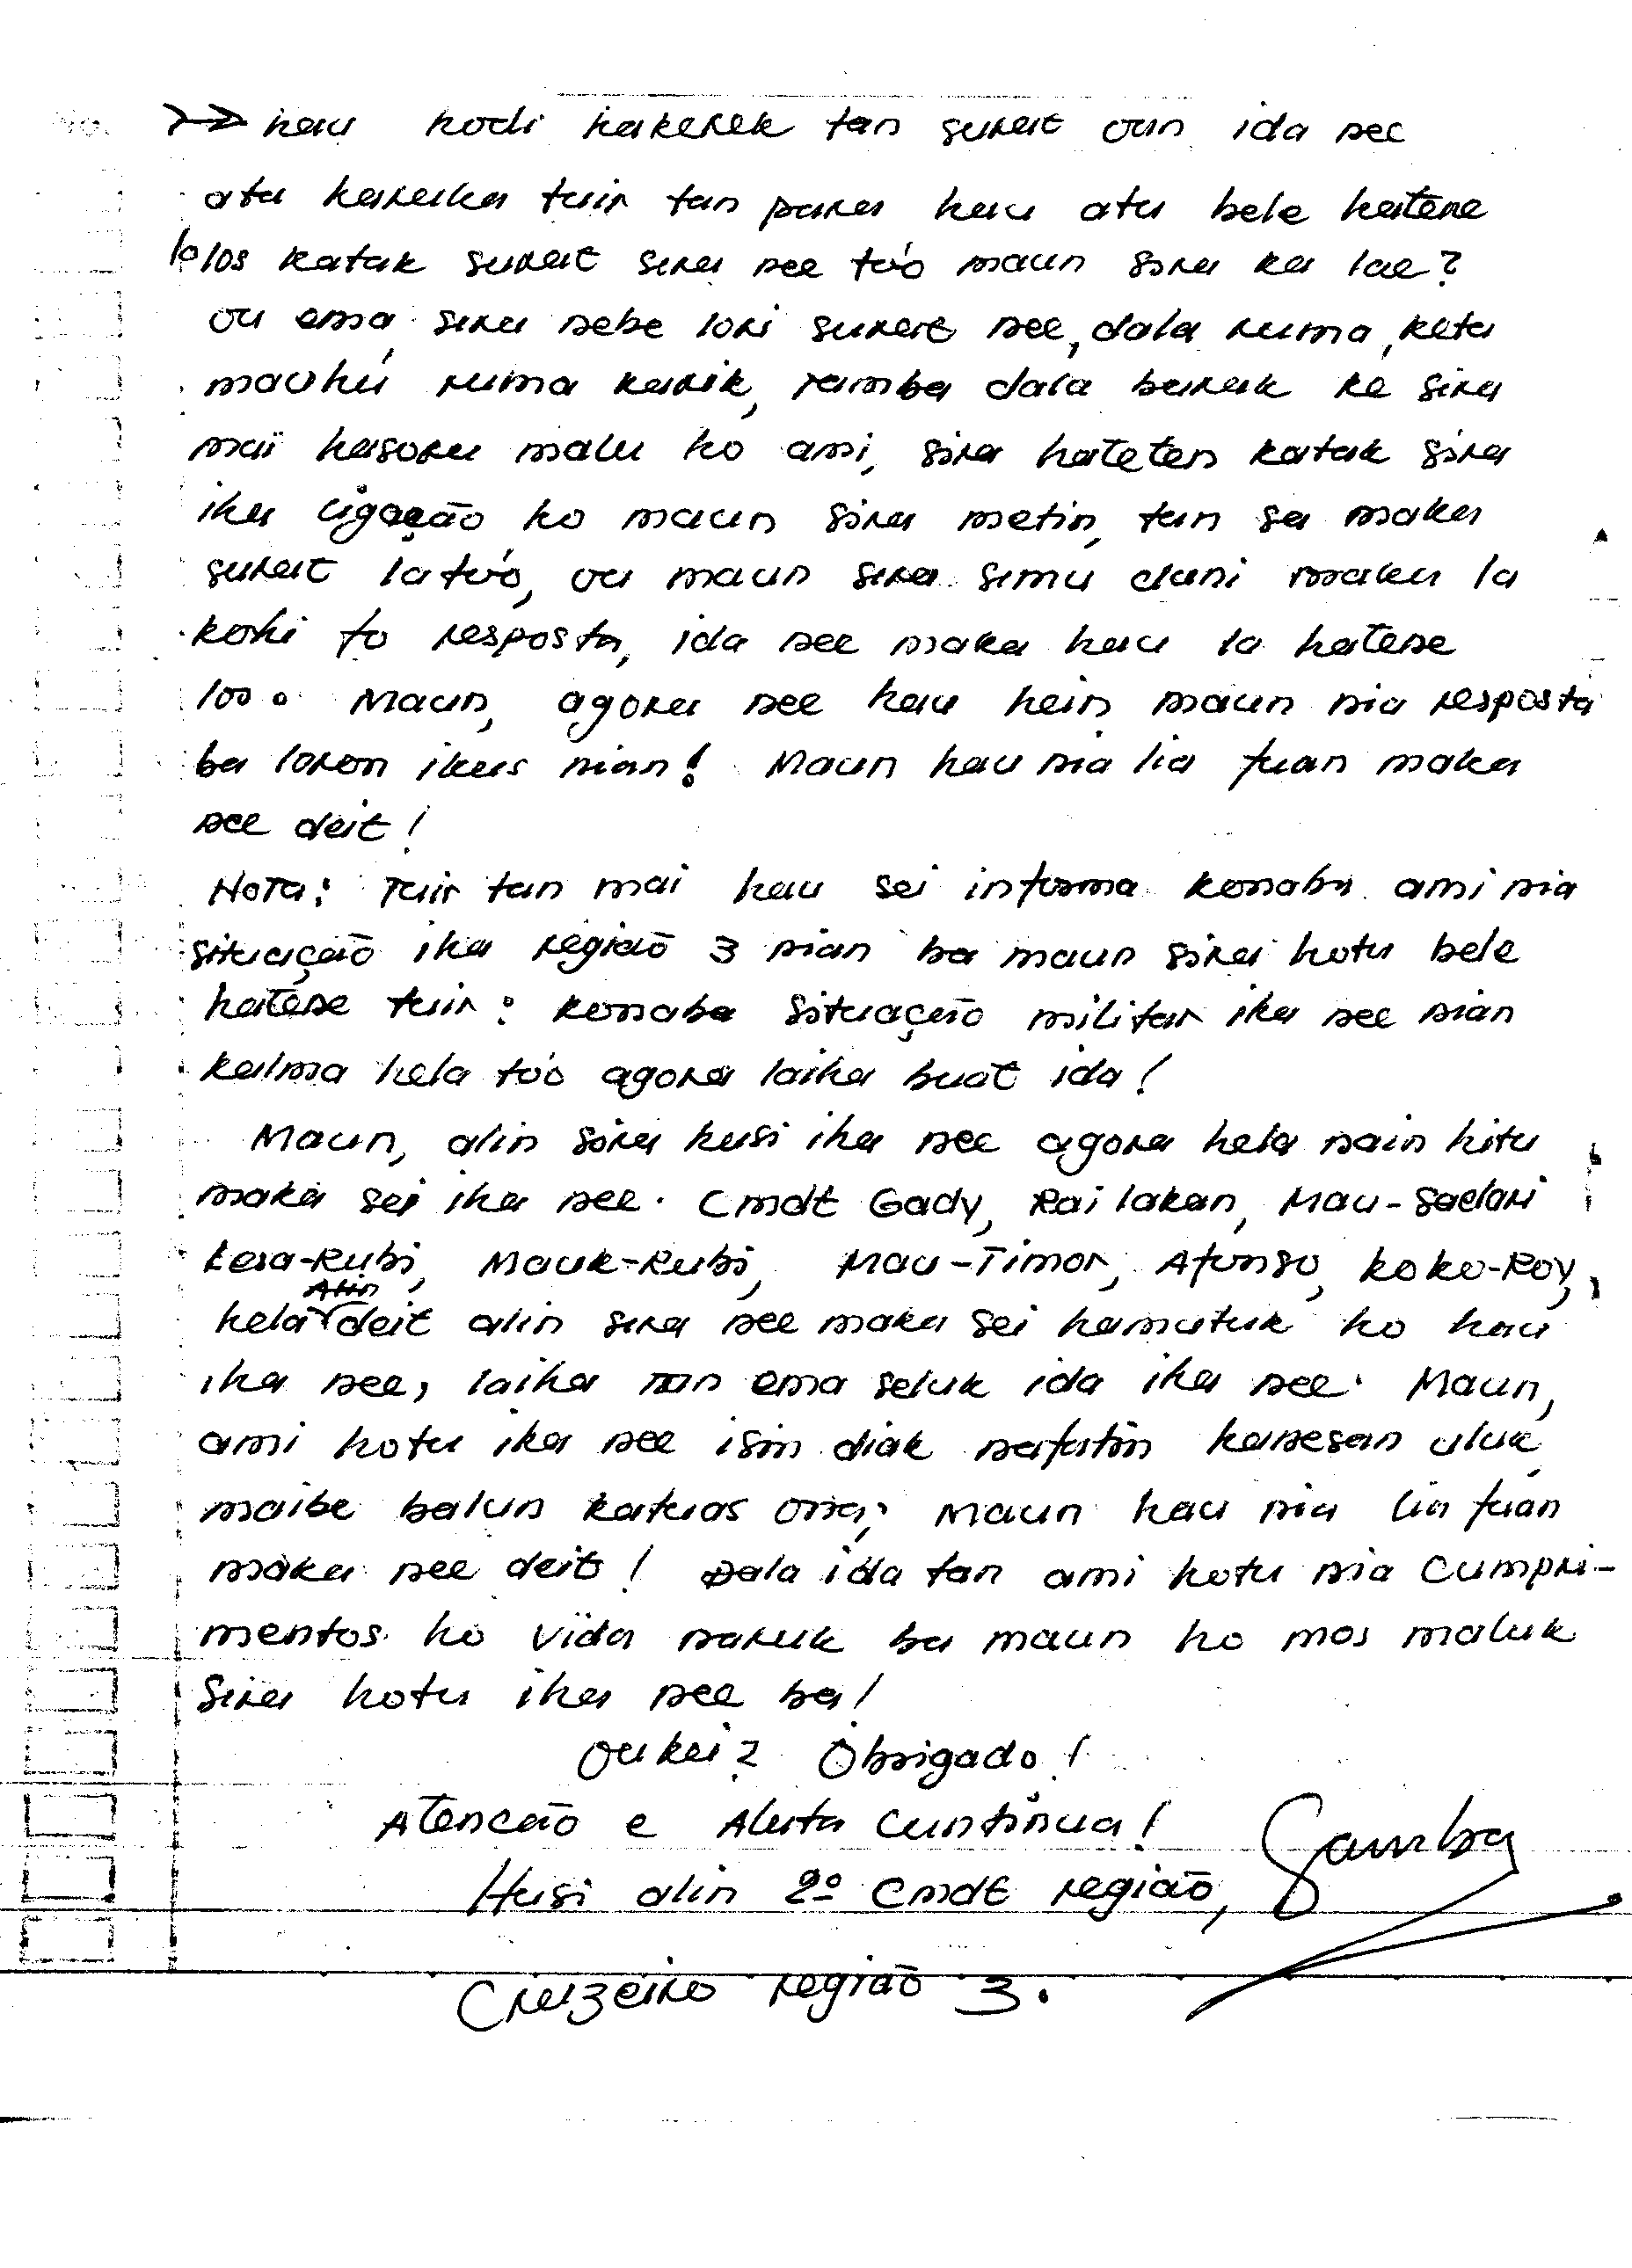 → hau hodi hakerek tan surat oan ida nee
atu haruka tuir tan para hau atu bele hatene
lolos katak surat sira nee tó'o maun sira ka lae?
ou ema sira nebe lori surat nee, dala ruma, keta
mauhú ruma karik, tamba dala barak ke sira
mai hasoru malu ho ami, sira hateten katak sira
iha ligação ho maun sira metin, tan sa maka
surat la tó'o, ou maun sira simú duni maka la
kohi fo resposta, ida nee maka hau la hatene
loo. Maun, agora nee hau hein maun nia resposta
ba loron ikus nian! Maun hau nia lia fuan maka
nee deit!
Nota: Tuir tan mai hau sei informa konaba ami nia
situação iha região 3 nian ba maun sira hotu bele
hatene tuir: konaba situação militar iha nee nian
kalma hela tó'o agora laiha buat ida!
Maun, alin sira husi iha nee agora hela nain hitu
maka sei iha nee. Cmdt Gady, Railakan, Mau-Saelari
Lesa-Rubi, Mauk-Rubi, Mau-Timor, Afonso, koko-Roy,
hela deit alin sira nee maka sei hamutuk ho hau
iha nee, laiha tan ema seluk ida iha nee. Maun,
ami hotu iha nee isin diak nafatin hanesan uluk
maibe balun katuas ona; Maun hau nia lia fuan
maka nee deit! Dala ida tan ami hotu nia Cumpri-
mentos ho vida naruk ba maun ho mos maluk
Sira hotu iha nee ba!
Oukei? Obrigado!
Atencão e Alerta Cuntinua!
Husi alin 2º Cmdt região, Samba
Cruzeiro região 3.